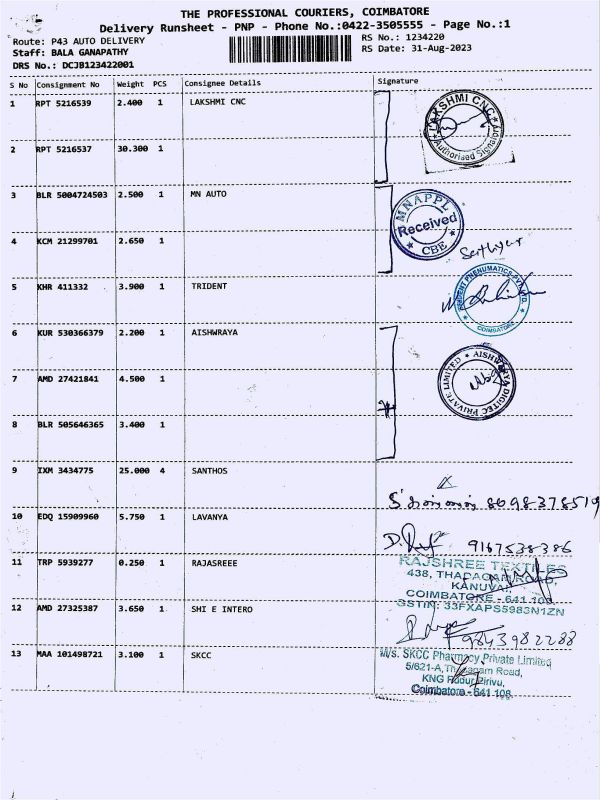 THE PROFESSIONAL COURIERS, COIMBATORE
Delivery Runsheet - PNP - Phone No.:0422-3505555 - Page No.:1
Route: P43 AUTO DELIVERY
Staff: BALA GANAPATHY
DRS No.: DCJB123422001
RS No.: 1234220
RS Date: 31-Aug-2023
S No Consignment No Weight PCS Consignee Details Signature
1 RPT 5216539 2.400 1 LAKSHMI CNC
LAKSHMI CNC
Authorised Signatory
2 RPT 5216537 30.300 1
3 BLR 5004724503 2.500 1 MN AUTO
MNAPPL
Received
CBE
4 KCM 21299701 2.650 1
5 KHR 411332 3.900 1 TRIDENT
COIMBATORE
6 KUR 530366379 2.200 1 AISHWRAYA
AISHWARYA DIGITEC PRIVATE LIMITED
7 AMD 27421841 4.500 1
8 BLR 505646365 3.400 1
9 IXM 3434775 25.000 4 SANTHOS
8698378519
10 EDQ 15909960 5.750 1 LAVANYA
9167538386
11 TRP 5939277 0.250 1 RAJASREEE
RAJSHREE TEXTILES
438, THADAGAM ROAD,
KANUVAI,
COIMBATORE - 641 108
GSTIN: 33FXAPS5983N1ZN
12 AMD 27325387 3.650 1 SHI E INTERO
9843982288
13 MAA 101498721 3.100 1 SKCC
M/s. SKCC Pharmacy Private Limited
5/621-A, Thadagam Road,
KNG Pudur Pirivu,
Coimbatore - 641 108